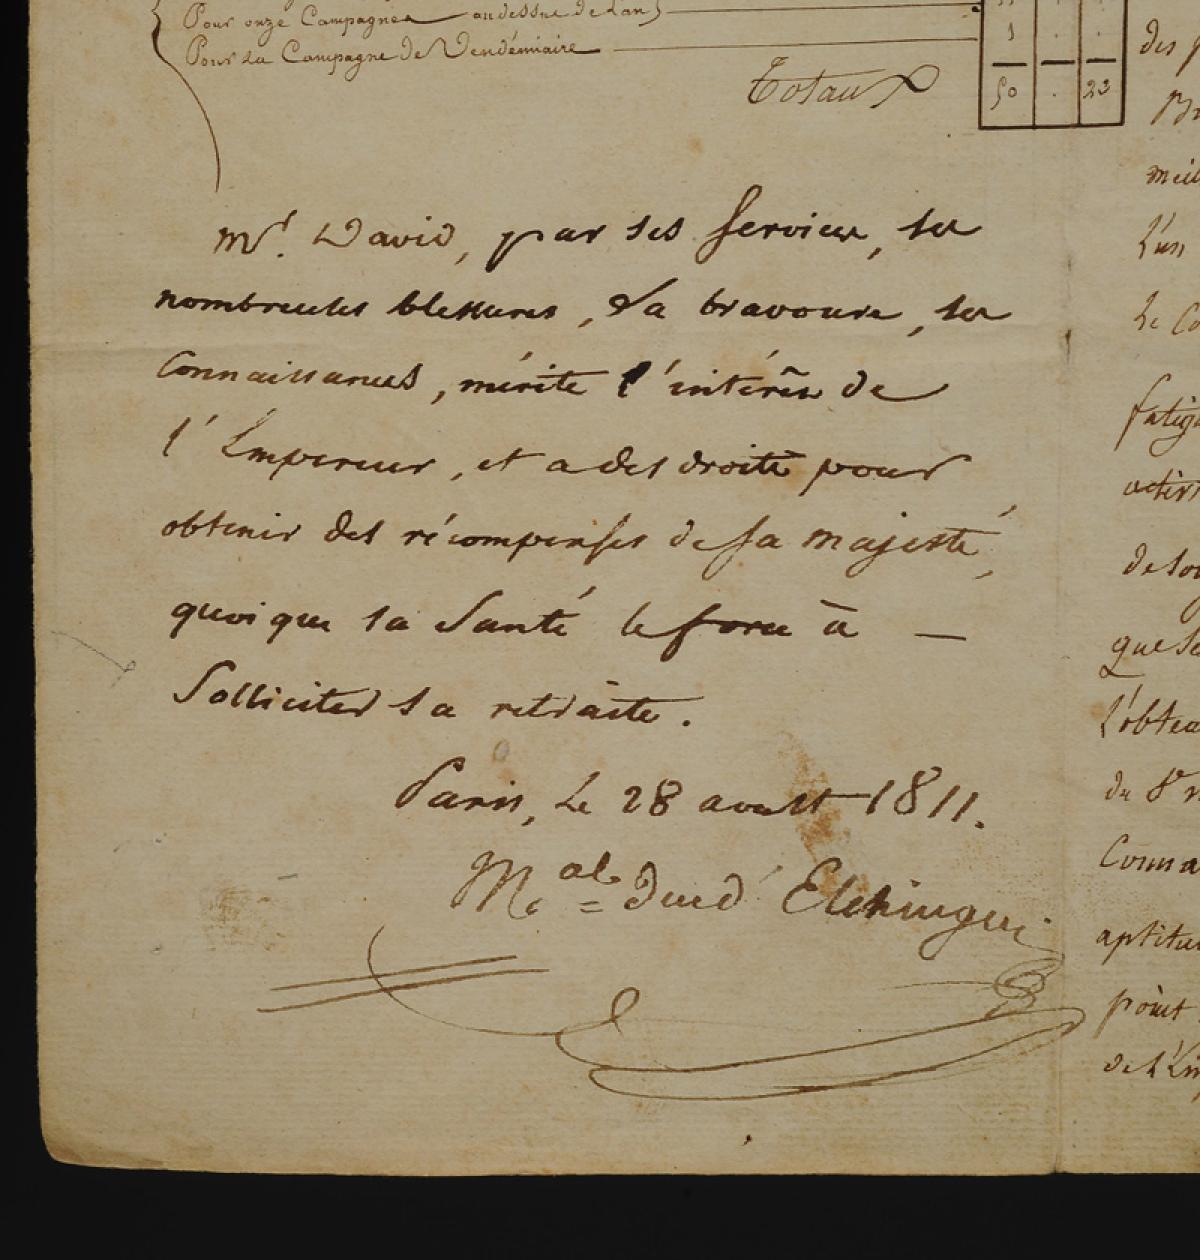 Pour onze Campagnes au dessus de l'an
Pour la Campagne de Vendémiaire
1 . .
Totaux
50 . 23
Mr. David, par ses services, ses
nombreuses blessures, Sa bravoure, ses
Connaissances, mérite l'intérêt de
l'Empereur, et a des droits pour
obtenir des récompenses de sa Majesté,
quoique sa Santé le force à —
Solliciter sa retraite.
Paris, Le 28 aoust 1811.
Mal Duc d'Elchingen
des
L'un
Le Co
fatig
activ
de so
que Sa
L'obte
du 8e
Conna
aptitu
point
de l'Em